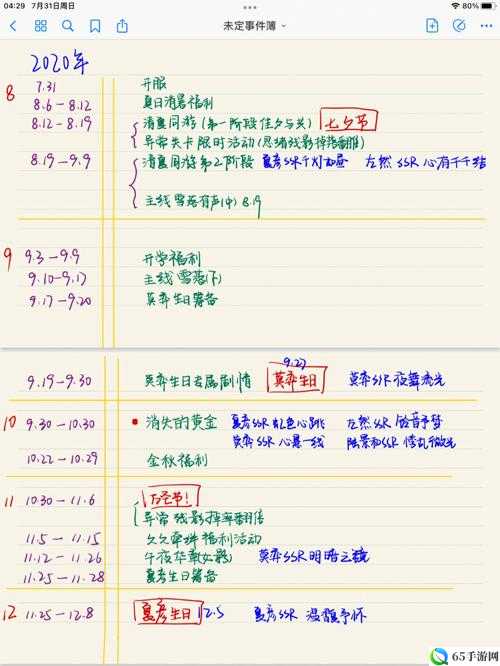 04:29 7月31日周日 80%
未定事件簿
2020年
8 7.31 开服
8.6-8.12 夏日消暑福利
8.12-8.19 清夏同游(第一阶段佳夕与共) 七夕节
异常失卡限时活动(思绪残影掉落翻倍)
8.19-9.9 清夏同游第2阶段 夏彦SSR 左然SSR心有千千结
主线 雪落有声(中) 8.19
9 9.3-9.9 开学福利
9.10-9.17 主线 雪落(下)
9.17-9.20 莫弈生日筹备
9.23
9.19-9.30 莫弈生日专属剧情 莫弈生日 莫弈SSR夜舞流光
10 9.30-10.30 消失的黄金 夏彦SSR红色心跳 左然SSR
莫弈SSR心悬一线 陆景和SSR
10.22-10.29 金秋福利
11 10.30-11.6 万圣节!
异常 残影掉率翻倍
11.5-11.15 久久牵绊 福利活动
11.12-11.26 午夜华章(如影) 莫弈SSR明暗之镜
11.25-11.28 夏彦生日筹备
12 11.25-12.8 夏彦生日 12.5 夏彦SSR 温馥予怀
65手游网